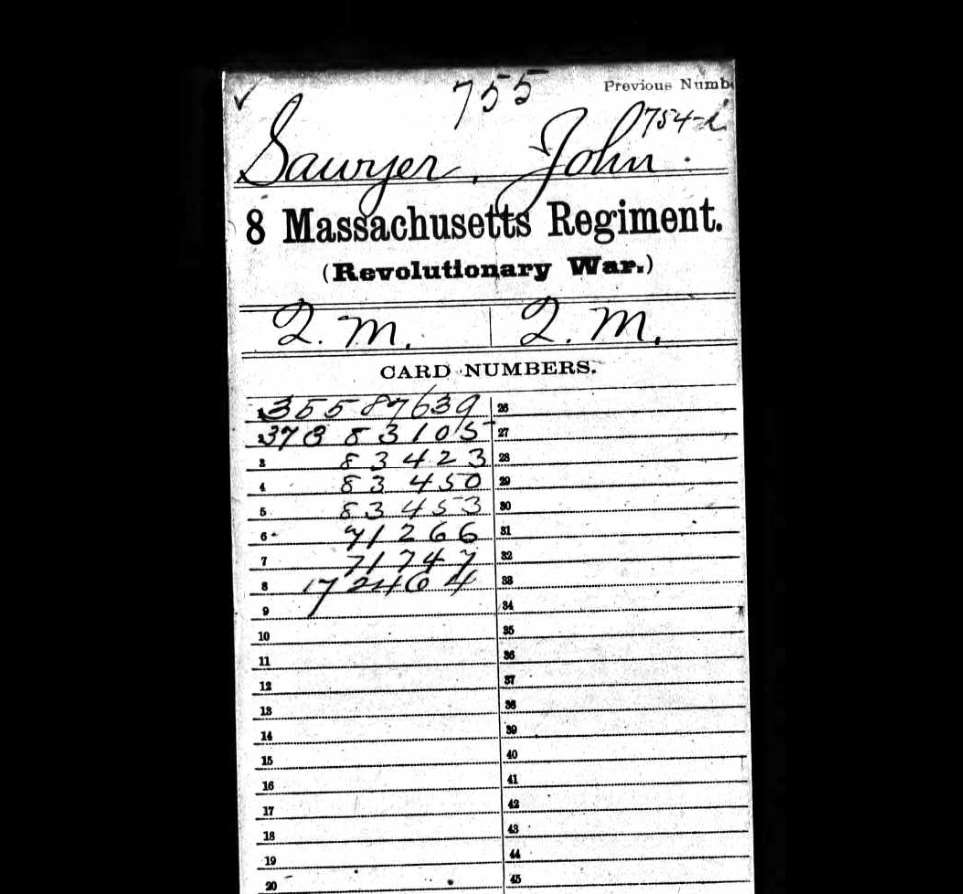 755 Previous Numb
754-
Sawyer, John.
8 Massachusetts Regiment.
(Revolutionary War.)
Q. M. Q. M.
CARD NUMBERS.
35587639 26
378 83105 27
3 83423 28
4 83450 29
5 83453 30
6 71266 31
7 71747 32
8 172464 33
9 34
10 35
11 36
12 37
13 38
14 39
15 40
16 41
17 42
18 43
19 44
20 45